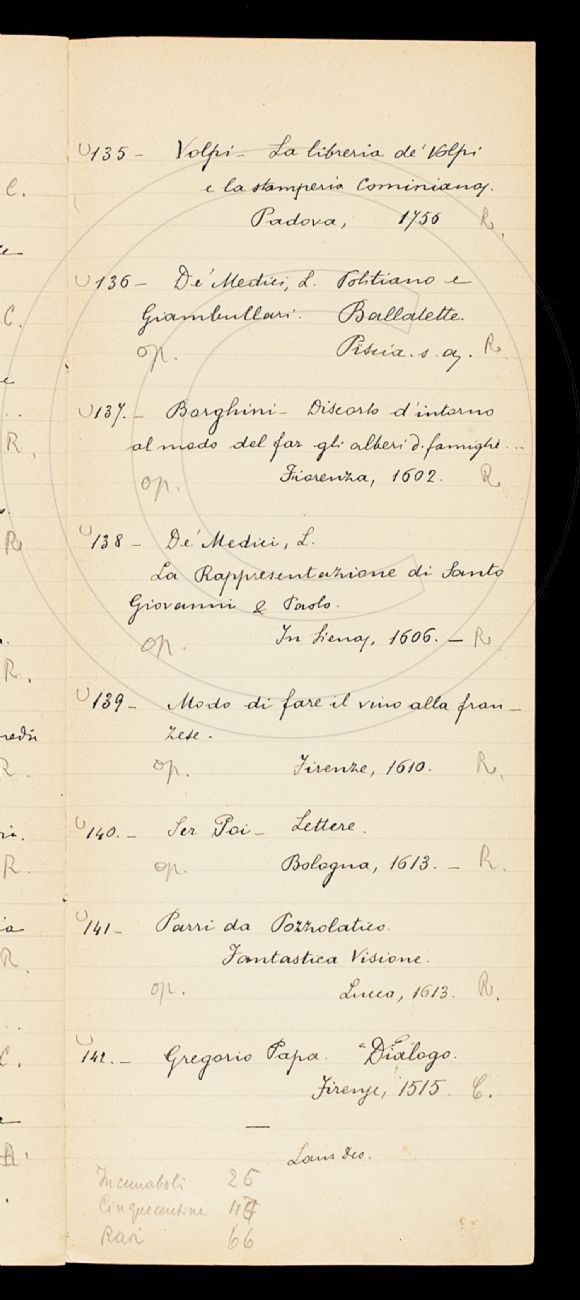 C.
135 - Volpi - La libreria de' Volpi
e la stamperia Cominiana.
Padova, 1756 R.
C.
136 - De' Medici, L. Politiano e
Giambullari. Ballatette.
op. Pescia. s. a. R.
R.
137. - Borghini - Discorso d'intorno
al modo del far gli alberi d. famighe...
op. Fiorenza, 1602. R.
R.
138 - De' Medici, L.
La Rappresentazione di Santo
Giovanni e Paolo.
op. In Siena, 1606. - R.
R.
139 - Modo di fare il vino alla fran-
zese.
op. Firenze, 1610. R.
140. - Ser Poi - Lettere.
op. Bologna, 1613. - R.
R.
141 - Parri da Pozzolatico.
Fantastica Visione.
op. Lucca, 1613. R.
R.
142. - Gregorio Papa. Dialogo.
C.
Firenze, 1515. C.
Laus Deo.
R.
Incunaboli 26
Cinquecentine
Rari 66